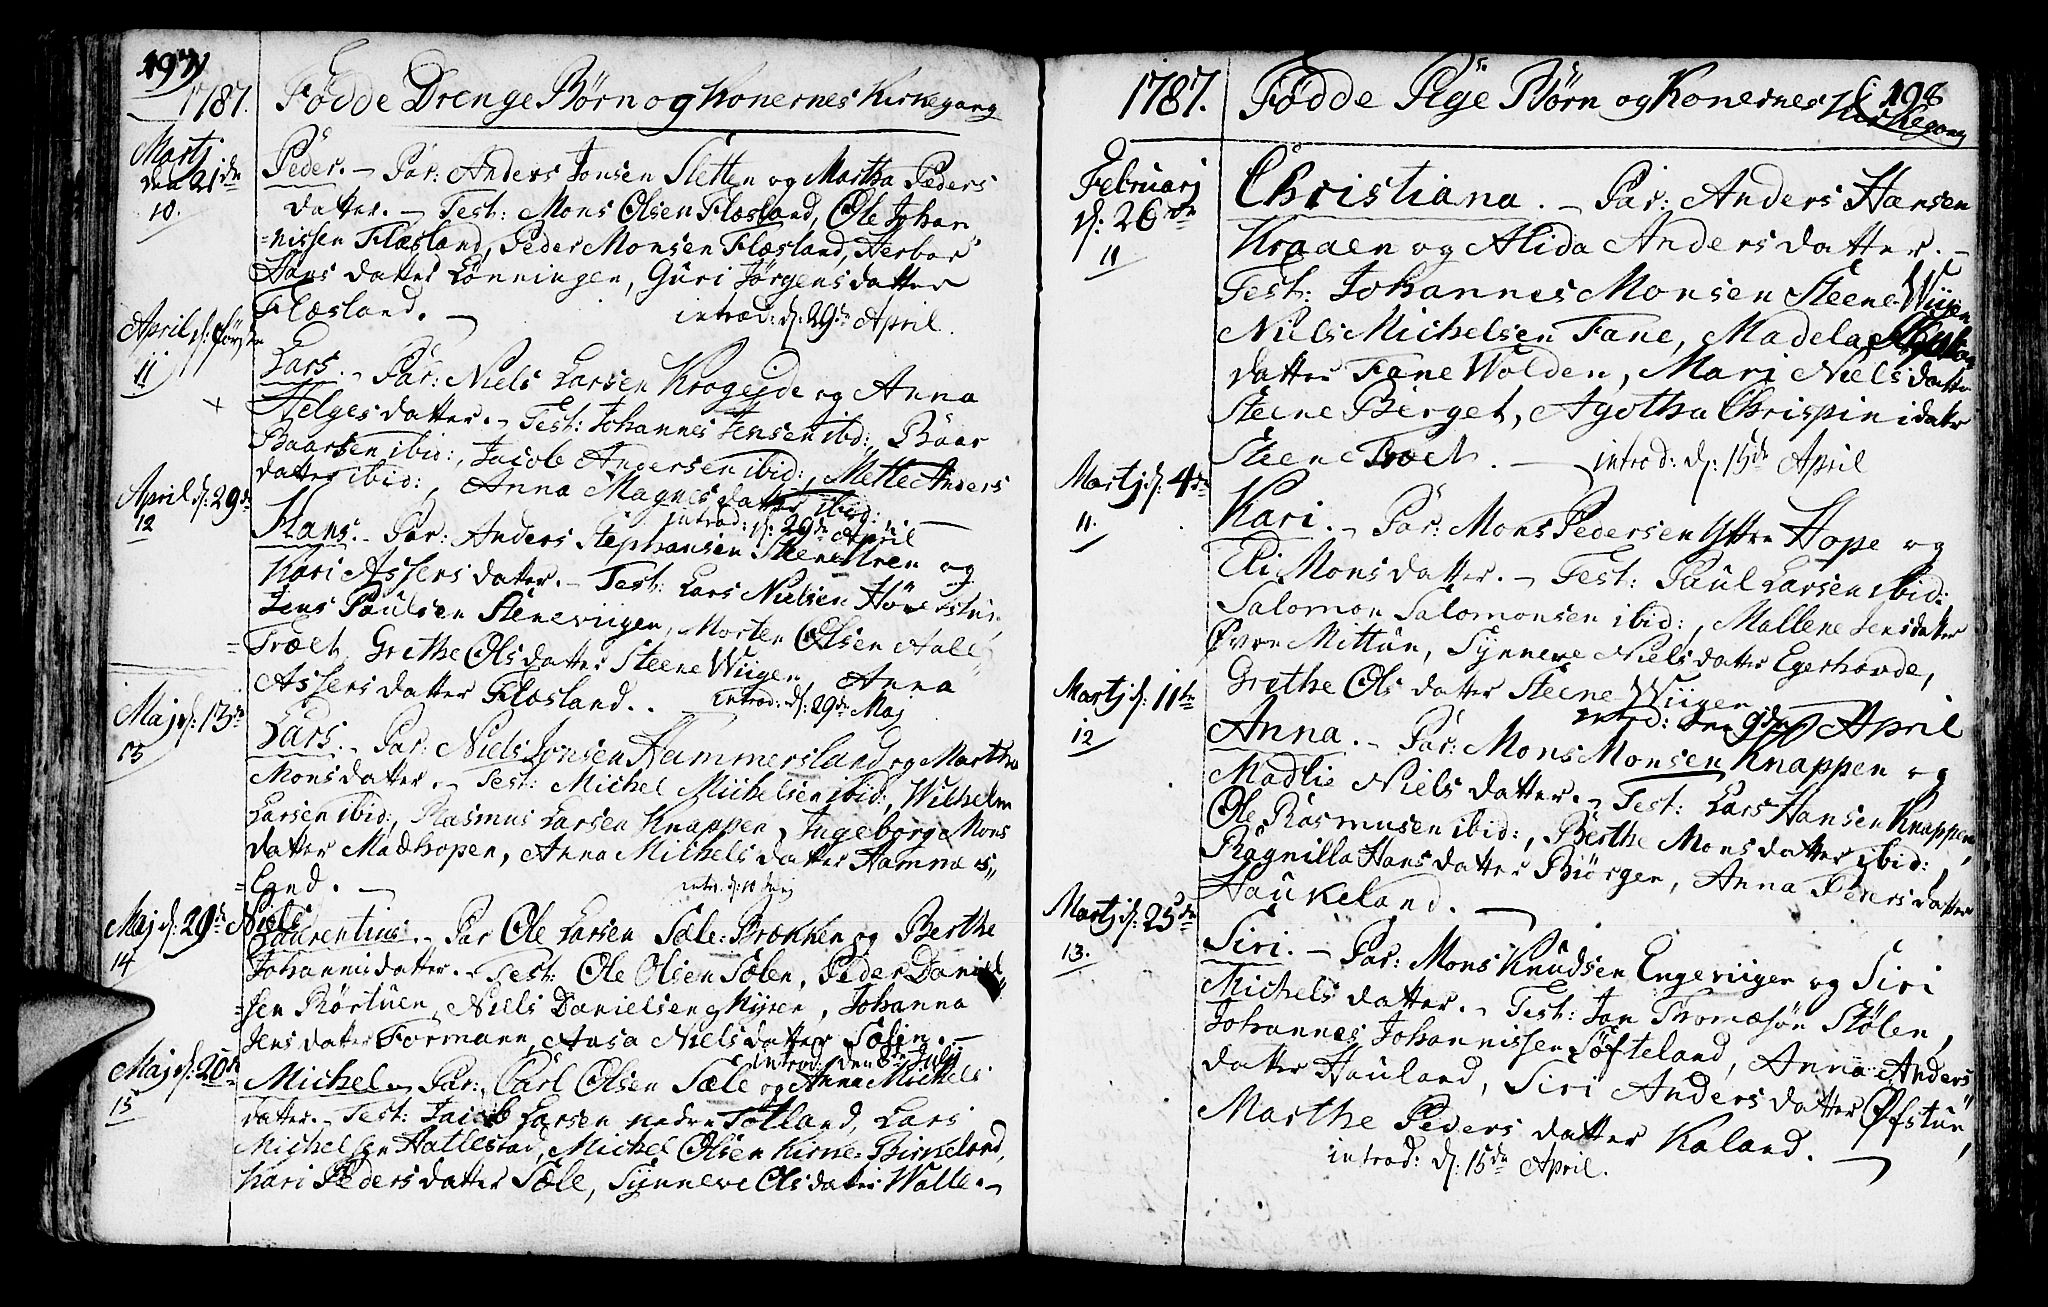 197
1787. Fødde Drenge Børn og Konernes Kirkegang
Martj
den 21de
10.
Peder. - Par: Anders Jonsen Sletten og Martha Peders
datter. - Test: Mons Olsen Flæsland, Ole Johan
=nissen Flæsland, Peder Monsen Flæsland, Herbor
Hans datter Lønningen, Guri Jørgens datter
Flæsland. - introd: d: 29de April.
April d: første
11
Lars. - Par: Niels Larsen Krogejde og Anna
Helges datter. - Test: Johannes Jensen ibid:, Baar
Baarsen ibid:, Jacob Andersen ibid:, Mette Anders
datter ibid:, Anna Magnes datter ibid: -
introd: d: 29de April
April d: 29de
12
Hans. - Par: Anders Stephansen Steene Uren og
Kari Assers datter. - Test: Lars Nielsen
Jens Paulsen Steneviigen, Morten Olsen Aale
=Træet, Grethe Ols datter Steene Wiigen, Anna
Assers datter Flæsland. . introd: d: 29de Maj
Maj d: 13de
13
Lars. - Par: Niels Jonsen Hammersland og Martha
Mons datter. - Test: Michel Michelsen ibid:, Wilhelm
Larsen ibid:, Rasmus Larsen Knappen, Ingeborg Mons
datter Madhopen, Anna Michels datter Hammers
=Land. - intr. d: 10 Junj
Maj d: 29de
14
Niels
Laurentius. - Par Ole Larsen Sæle-Brækken og Berthe
Johannis datter. - Test: Ole Olsen Sælen, Peder Daniel
=sen Rørtuen, Niels Danielsen Myren, Johanna
Jens datter Formann, Aasa Niels datter Sælen. -
introd: den 8de Julij
Maj d: 20de
15
Michel - Par: Carl Olsen Sæle og Anna Michels
datter. - Test: Jacob Larsen nedre Totland, Lars
Michelsen Hatlestad, Michel Olsen Kirke-Birkeland,
Kari Peders datter Sæle, Synneve Ols datter Walle. -
198
1787. Fødde Pige Børn og Konernes Kirkegang
Februarj
d: 26de
11
Christiana. - Par: Anders Hansen
Kraaen og Alida Anders datter. -
Test: Johannes Monsen Steene Wiigen
Niels Michelsen Fane, Madela
datter Fane Wolden, Mari Niels datter
Steene Berget, Agotha Chrispini datr
Steene Træet. - introd: d: 15de April
Martj d: 4de
11.
Kari. - Par: Mons Pedersen Yttre Hope og
Eli Mons datter. - Test: Paul Larsen ibid:
Salomon Salomonsen ibid:, Mallene Jens datter
Øvre Mittun, Synneve Niels datter Egerhovde,
Grethe Ols datter Steene Wiigen
introd: den 9de April
Martj d: 11te
12
Anna. - Par: Mons Monsen Knappen og
Madlie Niels datter. - Test: Lars Hansen Knappen,
Ole Rasmusen ibid:, Berthe Mons datter ibid:,
Ragnilla Hans datter Biørgen, Anna Peders datter
Haukeland. -
Martj d: 25de
13.
Siri. - Par: Mons Knudsen Engeviigen og Siri
Michels datter. - Test: Jon Thomæsøn Stølen,
Johannes Johannissen Søfteland, Anna Anders
datter Hauland, Siri Anders datter Øfstun,
Marthe Peders datter Kaland. -
introd: d: 15de April.